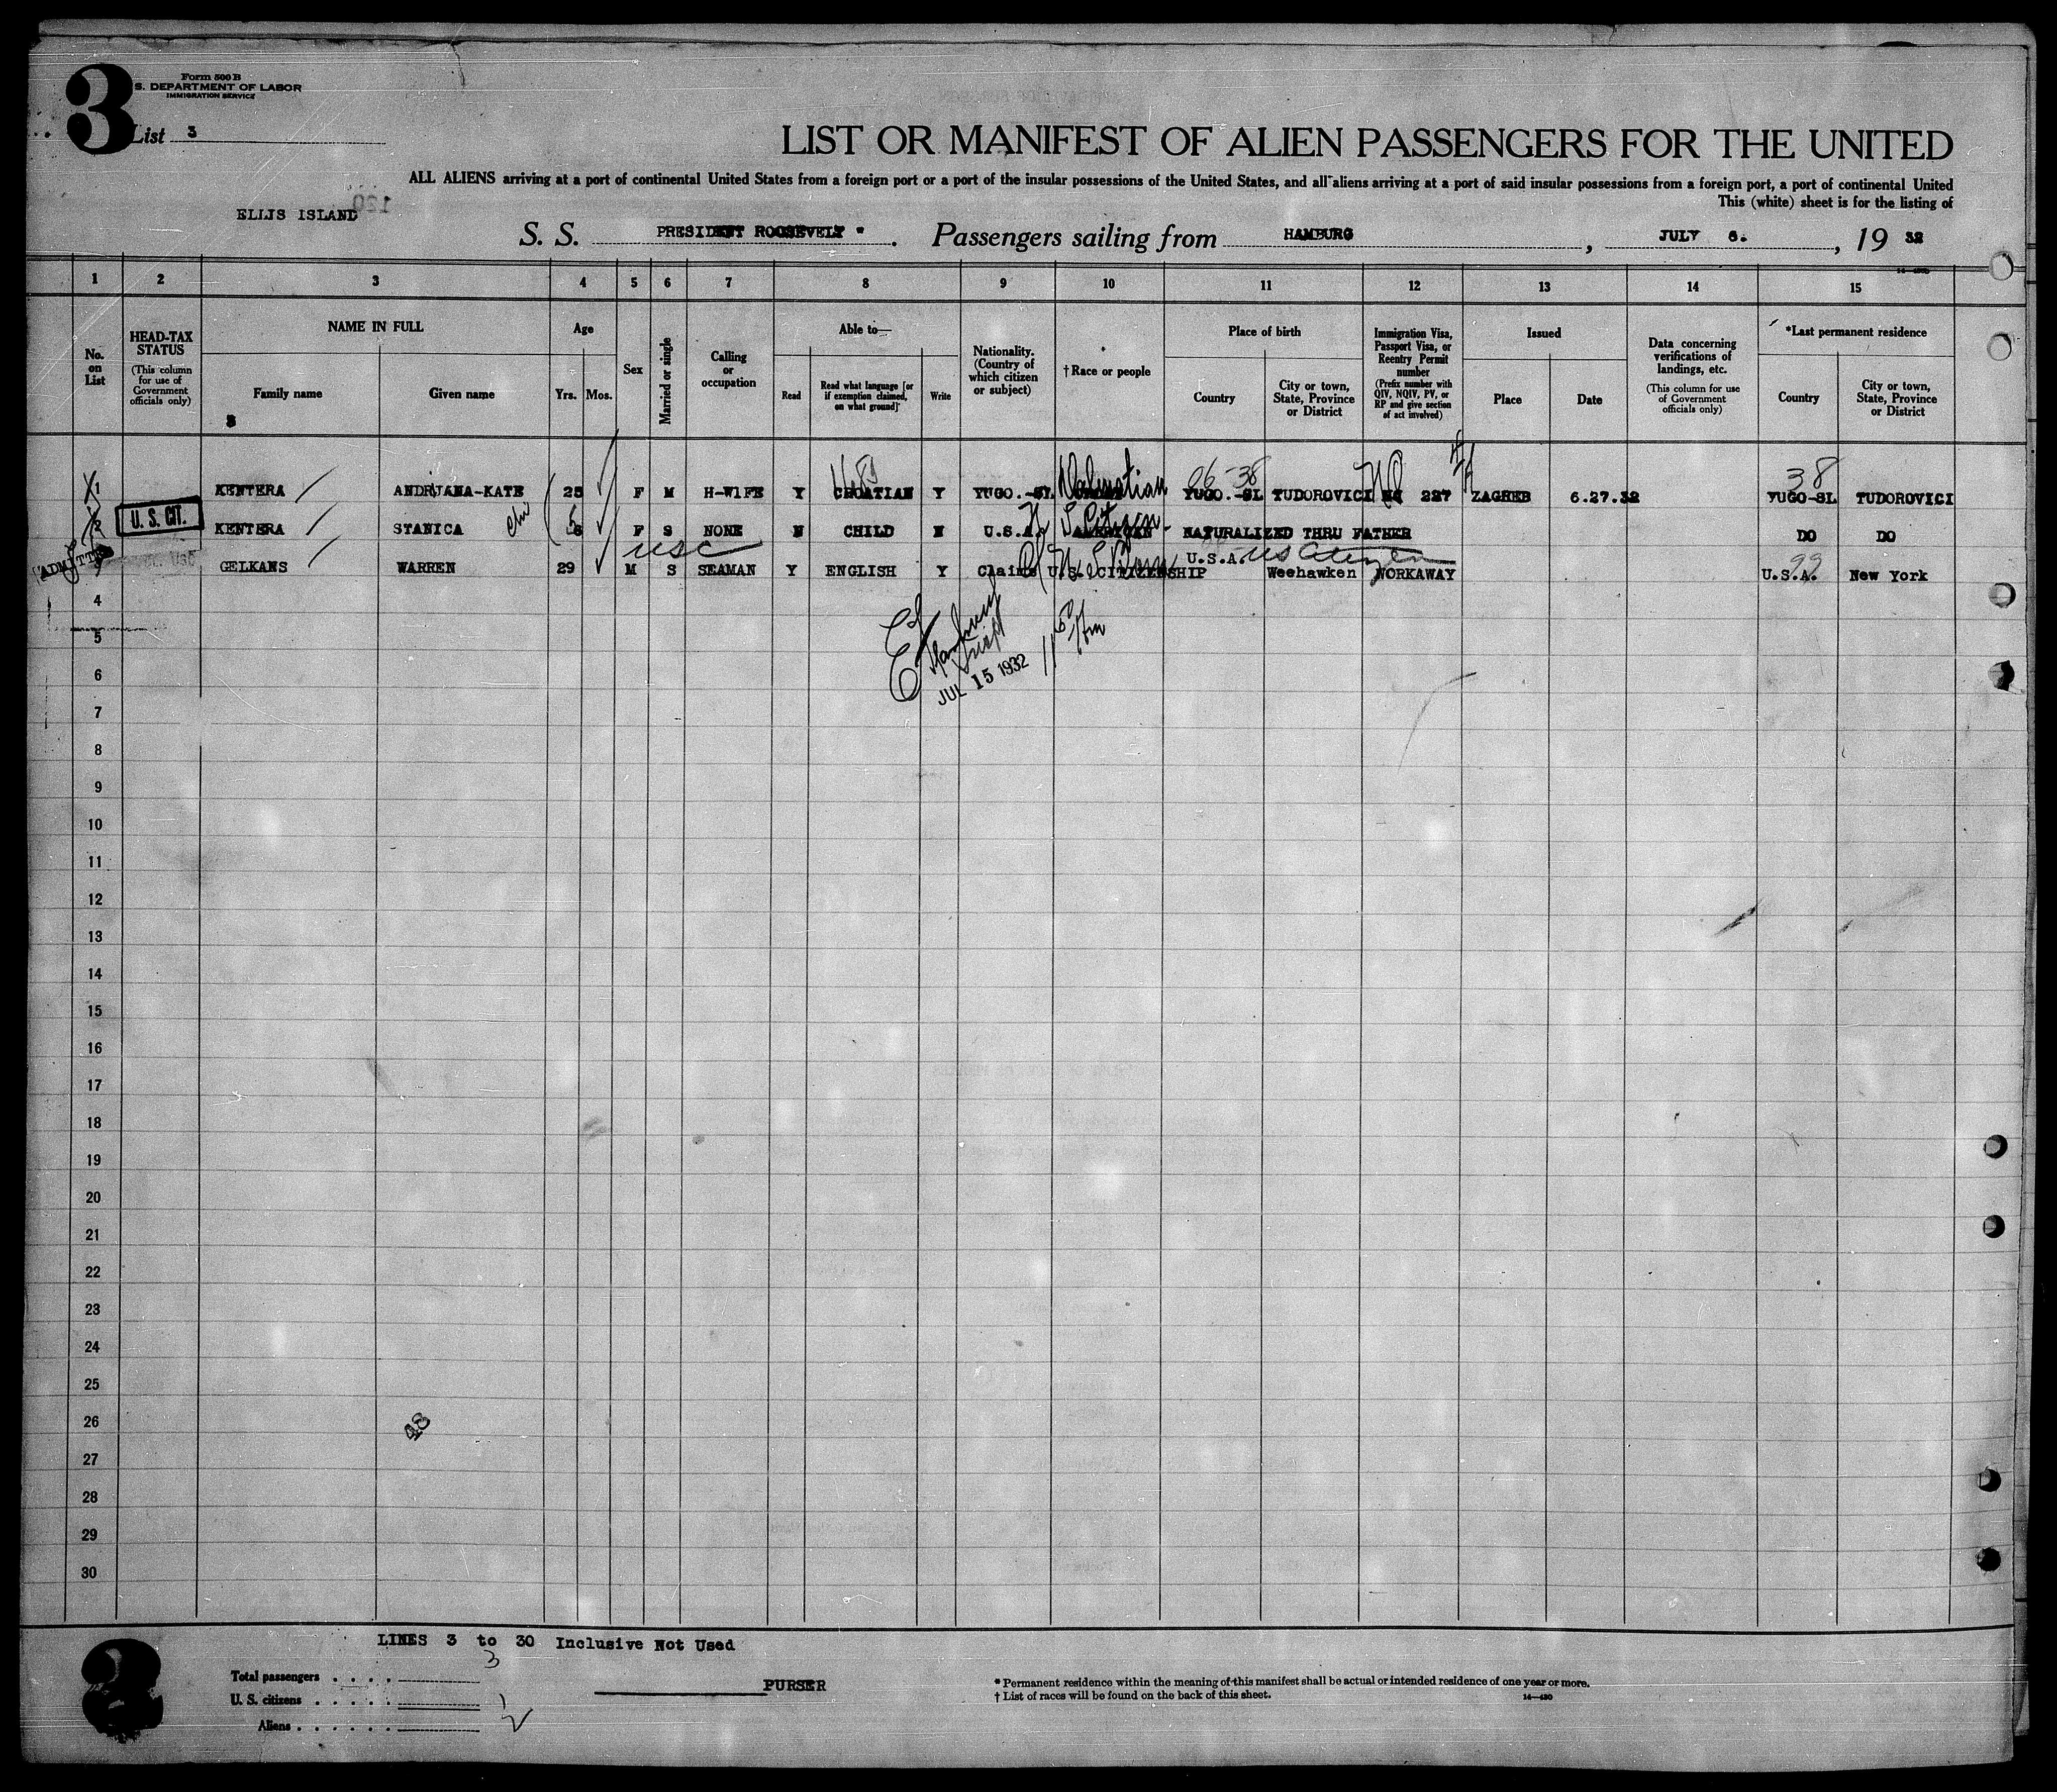 3
Form 500 B
S. DEPARTMENT OF LABOR
IMMIGRATION SERVICE
List 3
LIST OR MANIFEST OF ALIEN PASSENGERS FOR THE UNITED
ALL ALIENS arriving at a port of continental United States from a foreign port or a port of the insular possessions of the United States, and all aliens arriving at a port of said insular possessions from a foreign port, a port of continental United
This (white) sheet is for the listing of
120
ELLIS ISLAND
S. S. PRESIDENT ROOSEVELT * . Passengers sailing from HAMBURG , JULY 6. , 19 32
1 2 3 4 5 6 7 8 9 10 11 12 13 14 15
No. on List
HEAD-TAX STATUS
(This column for use of Government officials only)
NAME IN FULL
Family name
Given name
Age
Yrs. Mos.
Sex
Married or single
Calling or occupation
Able to—
Read
Read what language [or if exemption claimed, on what ground]
Write
Nationality. (Country of which citizen or subject)
† Race or people
Place of birth
Country
City or town, State, Province or District
Immigration Visa, Passport Visa, or Reentry Permit number
(Prefix number with QIV, NQIV, PV, or RP and give section of act involved)
Issued
Place
Date
Data concerning verifications of landings, etc.
(This column for use of Government officials only)
*Last permanent residence
Country
City or town, State, Province or District
06-38 38
1 KENTERA ANDRIJANA-KATE 25 F M H-WIFE Y CROATIAN Y YUGO.-SL Dalmatian YUGO.-SL TUDOROVICI NQ 227 ZAGREB 6.27.32 YUGO-SL TUDOROVICI
U. S. CIT.
2 KENTERA STANICA F S NONE N CHILD N U.S.A. U S Citizen AMERICAN NATURALIZED THRU FATHER DO DO
USC US Citizen
ADMITTED
3 GELKANS WARREN 29 M S SEAMAN Y ENGLISH Y Claims U.S. CITIZENSHIP U.S.A. Weehawken WORKAWAY 99 U.S.A. New York
4
5
JUL 15 1932
6
7
8
9
10
11
12
13
14
15
16
17
18
19
20
21
22
23
24
25
26
48
27
28
29
30
LINES 3 to 30 Inclusive Not Used
Total passengers . . . . 3
U. S. citizens . . . . . 1
Aliens . . . . . . 2
PURSER
* Permanent residence within the meaning of this manifest shall be actual or intended residence of one year or more.
† List of races will be found on the back of this sheet. 14—430